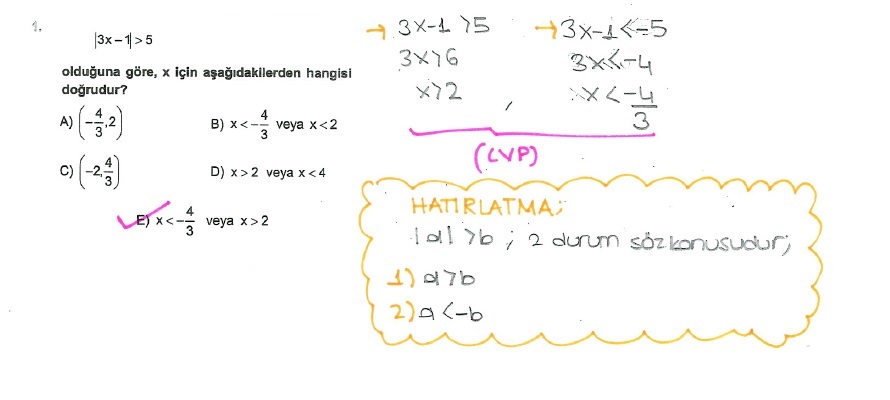 1.
|3x-1|>5
olduğuna göre, x için aşağıdakilerden hangisi
doğrudur?
A) (-4/3, 2)
B) x < -4/3 veya x < 2
C) (-2, 4/3)
D) x > 2 veya x < 4
E) x < -4/3 veya x > 2
→ 3x-1 > 5
3x > 6
x > 2
,
→ 3x-1 < -5
3x < -4
x < -4/3
(CVP)
HATIRLATMA;
|a| > b ; 2 durum söz konusudur;
1) a > b
2) a < -b